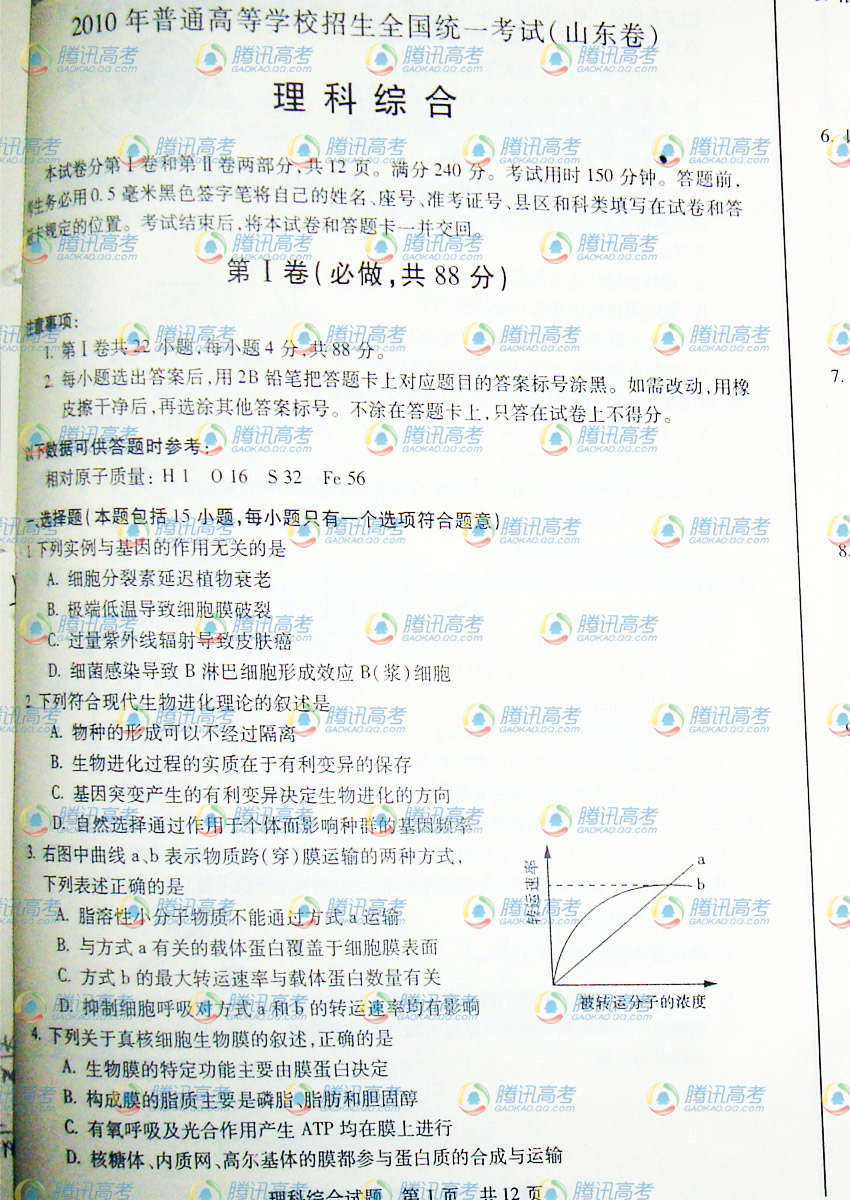 2010年普通高等学校招生全国统一考试(山东卷)
理科综合
本试卷分第Ⅰ卷和第Ⅱ卷两部分,共12页。满分240分。考试用时150分钟。答题前,
考生务必用0.5毫米黑色签字笔将自己的姓名、座号、准考证号、县区和科类填写在试卷和答
题卡规定的位置。考试结束后,将本试卷和答题卡一并交回。
第Ⅰ卷(必做,共88分)
注意事项:
1. 第Ⅰ卷共22小题,每小题4分,共88分。
2. 每小题选出答案后,用2B铅笔把答题卡上对应题目的答案标号涂黑。如需改动,用橡
皮擦干净后,再选涂其他答案标号。不涂在答题卡上,只答在试卷上不得分。
以下数据可供答题时参考:
相对原子质量:H 1 O 16 S 32 Fe 56
一、选择题(本题包括15小题,每小题只有一个选项符合题意)
1.下列实例与基因的作用无关的是
A. 细胞分裂素延迟植物衰老
B. 极端低温导致细胞膜破裂
C. 过量紫外线辐射导致皮肤癌
D. 细菌感染导致B淋巴细胞形成效应B(浆)细胞
2.下列符合现代生物进化理论的叙述是
A. 物种的形成可以不经过隔离
B. 生物进化过程的实质在于有利变异的保存
C. 基因突变产生的有利变异决定生物进化的方向
D. 自然选择通过作用于个体而影响种群的基因频率
3. 右图中曲线a、b表示物质跨(穿)膜运输的两种方式,
下列表述正确的是
A. 脂溶性小分子物质不能通过方式a运输
B. 与方式a有关的载体蛋白覆盖于细胞膜表面
C. 方式b的最大转运速率与载体蛋白数量有关
D. 抑制细胞呼吸对方式a和b的转运速率均有影响
转运速率
a
b
被转运分子的浓度
4. 下列关于真核细胞生物膜的叙述,正确的是
A. 生物膜的特定功能主要由膜蛋白决定
B. 构成膜的脂质主要是磷脂、脂肪和胆固醇
C. 有氧呼吸及光合作用产生ATP均在膜上进行
D. 核糖体、内质网、高尔基体的膜都参与蛋白质的合成与运输
理科综合试题 第1页 共12页
6.
7.
8.
腾讯高考
GAOKAO.QQ.COM